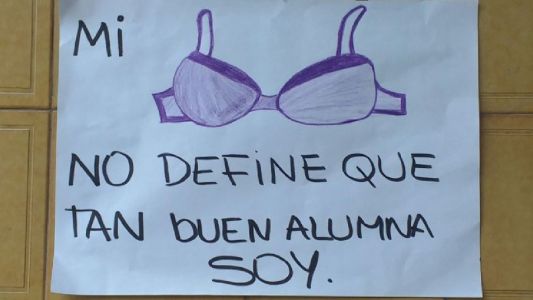 Mi
NO DEFINE QUE
TAN BUEN ALUMNA
SOY.